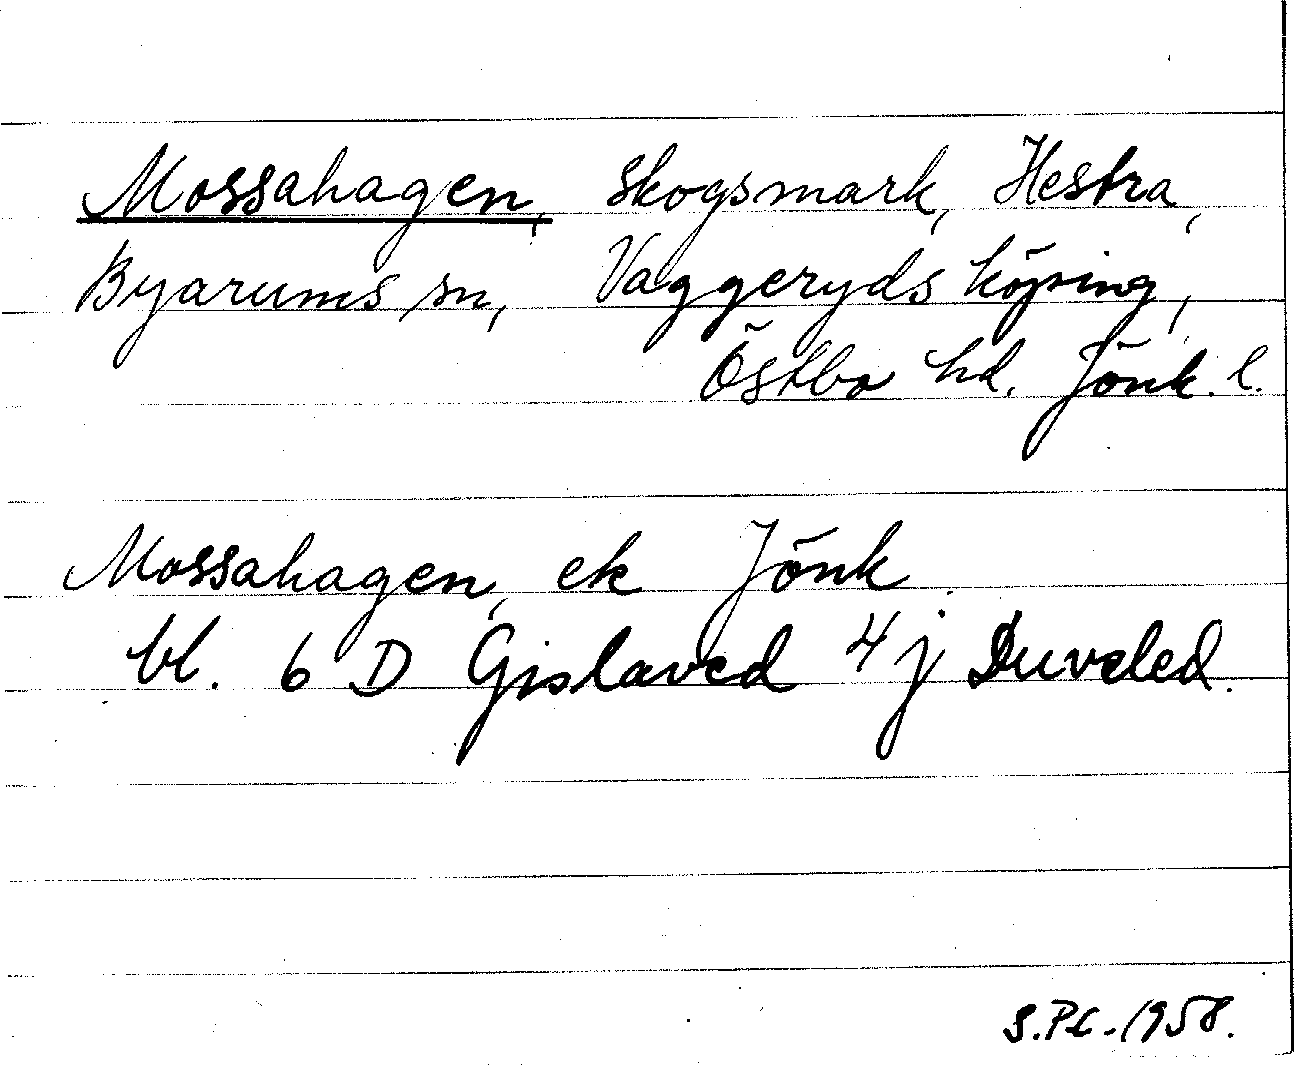 Mossahagen, skogsmark, Hestra,
Byarums sn, Vaggeryds köping,
Östbo hd. Jönk. l.
Mossahagen, ek Jönk.
bl. 6 D Gislaved 4 j Duveled.
1958.